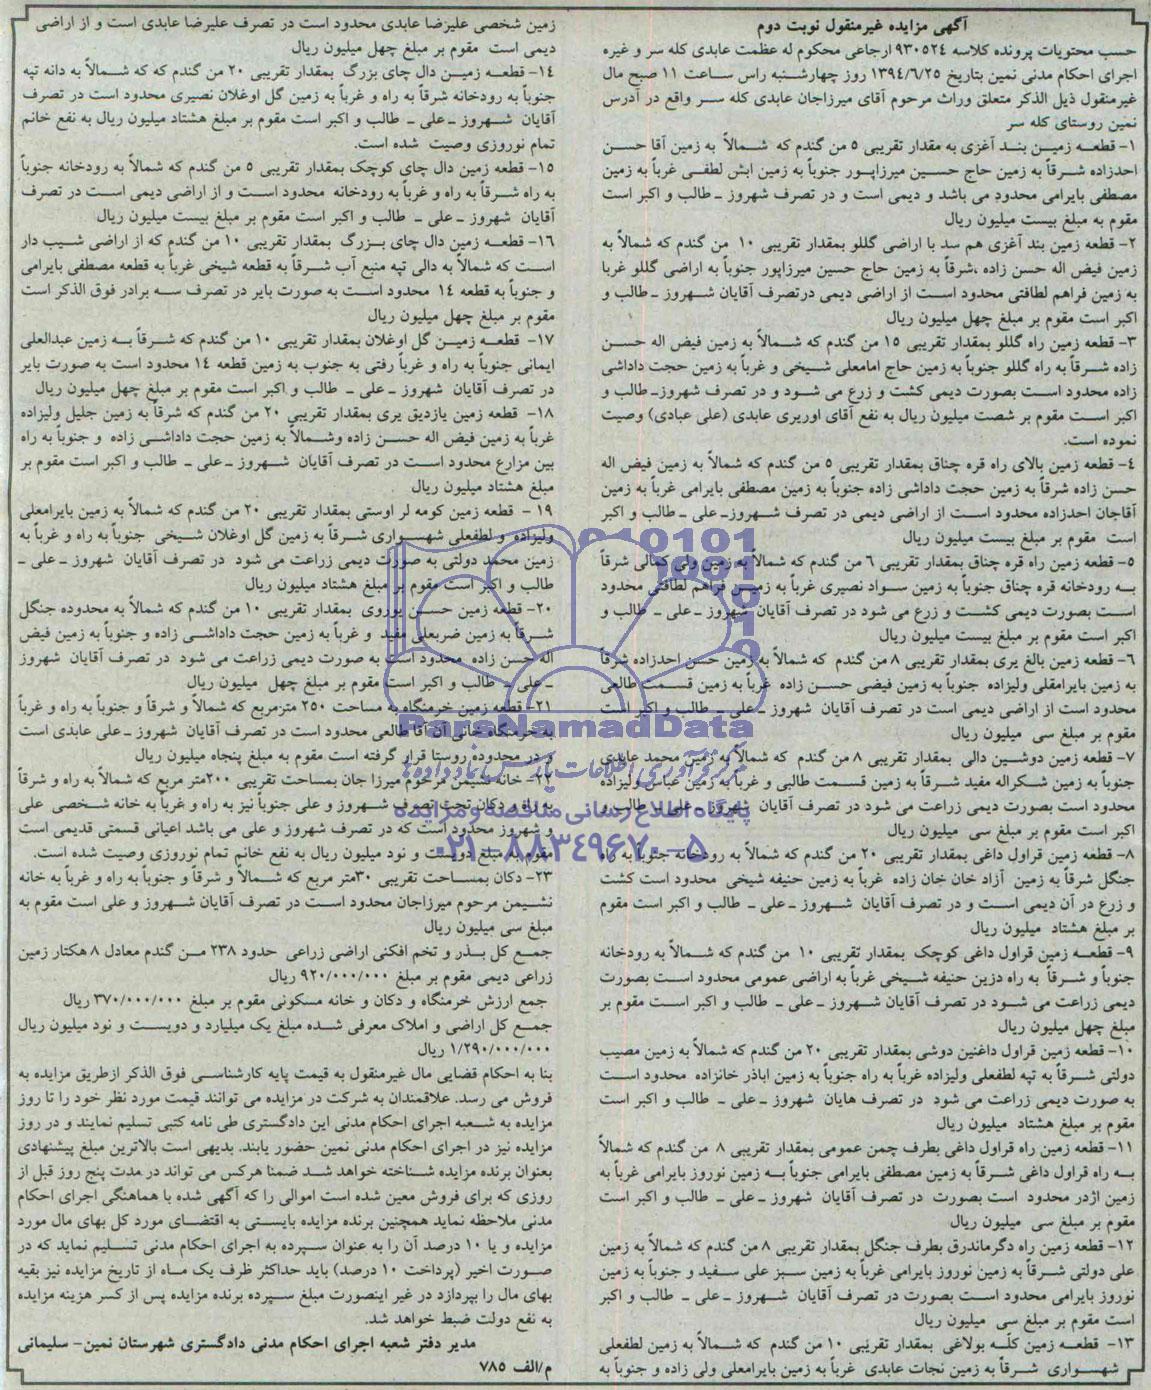 آگهی مزایده غیرمنقول نوبت دوم
حسب محتویات پرونده کلاسه ۹۳۰۵۲۴ ارجاعی محکوم له عظمت عابدی کله سر و غیره
اجرای احکام مدنی نمین بتاریخ ۱۳۹۴/۶/۲۵ روز چهارشنبه راس ساعت ۱۱ صبح مال
غیرمنقول ذیل الذکر متعلق وراث مرحوم آقای میرزاجان عابدی کله سر واقع در آدرس
نمین روستای کله سر
۱- قطعه زمین بند آغزی به مقدار تقریبی ۵ من گندم که شمالاً به زمین آقا حسن
احدزاده شرقاً به زمین حاج حسین میرزاپور جنوباً به زمین ابش لطفی غرباً به زمین
مصطفی بایرامی محدود می باشد و دیمی است و در تصرف شهروز ـ طالب و اکبر است
مقوم به مبلغ بیست میلیون ریال
۲- قطعه زمین بند آغزی هم سد با اراضی گللو بمقدار تقریبی ۱۰ من گندم که شمالاً به
زمین فیض اله حسن زاده ،شرقاً به زمین حاج حسین میرزاپور جنوباً به اراضی گللو غربا
به زمین فراهم لطافتی محدود است از اراضی دیمی درتصرف آقایان شهروز ـ طالب و
اکبر است مقوم بر مبلغ چهل میلیون ریال
۳- قطعه زمین راه گللو بمقدار تقریبی ۱۵ من گندم که شمالاً به زمین فیض اله حسن
زاده شرقاً به راه گللو جنوباً به زمین حاج امامعلی شیخی و غرباً به زمین حجت داداشی
زاده محدود است بصورت دیمی کشت و زرع می شود و در تصرف شهروزـ طالب و
اکبر است مقوم بر شصت میلیون ریال به نفع آقای اوریری عابدی (علی عبادی) وصیت
نموده است.
۴- قطعه زمین بالای راه قره چناق بمقدار تقریبی ۵ من گندم که شمالاً به زمین فیض اله
حسن زاده شرقاً به زمین حجت داداشی زاده جنوباً به زمین مصطفی بایرامی غرباً به زمین
آقاجان احدزاده محدود است از اراضی دیمی در تصرف شهروزـ علی ـ طالب و اکبر
است مقوم بر مبلغ بیست میلیون ریال
۵- قطعه زمین راه قره چناق بمقدار تقریبی ۶ من گندم که شمالاً به زمین ولی کمالی شرقاً
به رودخانه قره چناق جنوباً به زمین سواد نصیری غرباً به زمین فراهم لطافتی محدود
است بصورت دیمی کشت و زرع می شود در تصرف آقایان شهروز ـ علی ـ طالب و
اکبر است مقوم بر مبلغ بیست میلیون ریال
۶- قطعه زمین بالغ یری بمقدار تقریبی ۸ من گندم که شمالاً به زمین حسن احدزاده شرقاً
به زمین بایرامقلی ولیزاده جنوباً به زمین فیضی حسن زاده غرباً به زمین قسمت طالعی
محدود است از اراضی دیمی است در تصرف آقایان شهروز ـ علی ـ طالب و اکبر است
مقوم بر مبلغ سی میلیون ریال
۷- قطعه زمین دوشین دالی بمقدار تقریبی ۸ من گندم که شمالاً به زمین محمد عابدی
جنوباً به زمین شکراله مفید شرقاً به زمین قسمت طالبی و غرباً به زمین عباس ولیزاده
محدود است بصورت دیمی زراعت می شود در تصرف آقایان شهروز ـ علی ـ طالب و
اکبر است مقوم بر مبلغ سی میلیون ریال
۸- قطعه زمین قراول داغی بمقدار تقریبی ۲۰ من گندم که شمالاً به رودخانه جنوباً به راه
جنگل شرقاً به زمین آزاد خان خان زاده غرباً به زمین حنیفه شیخی محدود است کشت
و زرع در آن دیمی است و در تصرف آقایان شهروز ـ علی ـ طالب و اکبر است مقوم
بر مبلغ هشتاد میلیون ریال
۹- قطعه زمین قراول داغی کوچک بمقدار تقریبی ۱۰ من گندم که شمالاً به رودخانه
جنوباً و شرقاً به راه دزین حنیفه شیخی غرباً به اراضی عمومی محدود است بصورت
دیمی زراعت می شود در تصرف آقایان شهروز ـ علی ـ طالب و اکبر است مقوم بر
مبلغ چهل میلیون ریال
۱۰- قطعه زمین قراول داغنین دوشی بمقدار تقریبی ۲۰ من گندم که شمالاً به زمین مصیب
دولتی شرقاً به تپه لطفعلی ولیزاده غرباً به راه جنوباً به زمین اباذر خانزاده محدود است
به صورت دیمی زراعت می شود در تصرف هایان شهروز ـ علی ـ طالب و اکبر است
مقوم بر مبلغ هشتاد میلیون ریال
۱۱- قطعه زمین راه قراول داغی بطرف چمن عمومی بمقدار تقریبی ۸ من گندم که شمالاً
به راه قراول داغی شرقاً به زمین مصطفی بایرامی جنوباً به زمین نوروز بایرامی غرباً به
زمین اژدر محدود است بصورت در تصرف آقایان شهروز ـ علی ـ طالب و اکبر است
مقوم بر مبلغ سی میلیون ریال
۱۲- قطعه زمین راه دگرماندرق بطرف جنگل بمقدار تقریبی ۸ من گندم که شمالاً به زمین
علی دولتی شرقاً به زمین نوروز بایرامی غرباً به زمین سبز علی سفید و جنوباً به زمین
نوروز بایرامی محدود است بصورت در تصرف آقایان شهروز ـ علی ـ طالب و اکبر
است مقوم بر مبلغ سی میلیون ریال
۱۳- قطعه زمین کلّه بولاغی بمقدار تقریبی ۱۰ من گندم که شمالاً به زمین لطفعلی
شهسواری شرقاً به زمین نجات عابدی غرباً به زمین بایرامعلی ولی زاده و جنوباً به
زمین شخصی علیرضا عابدی محدود است در تصرف علیرضا عابدی است و از اراضی
دیمی است مقوم بر مبلغ چهل میلیون ریال
۱۴- قطعه زمین دال چای بزرگ بمقدار تقریبی ۲۰ من گندم که که شمالاً به دانه تپه
جنوباً به رودخانه شرقاً به راه و غرباً به زمین گل اوغلان نصیری محدود است در تصرف
آقایان شهروز ـ علی ـ طالب و اکبر است مقوم بر مبلغ هشتاد میلیون ریال به نفع خانم
تمام نوروزی وصیت شده است.
۱۵- قطعه زمین دال چای کوچک بمقدار تقریبی ۵ من گندم که شمالاً به رودخانه جنوباً
به راه شرقاً به راه و غرباً به رودخانه محدود است و از اراضی دیمی است در تصرف
آقایان شهروز ـ علی ـ طالب و اکبر است مقوم بر مبلغ بیست میلیون ریال
۱۶- قطعه زمین دال چای بزرگ بمقدار تقریبی ۱۰ من گندم که از اراضی شیب دار
است که شمالاً به دالی تپه منبع آب شرقاً به قطعه شیخی غرباً به قطعه مصطفی بایرامی
و جنوباً به قطعه ۱۴ محدود است به صورت بایر در تصرف سه برادر فوق الذکر است
مقوم بر مبلغ چهل میلیون ریال
۱۷- قطعه زمین گل اوغلان بمقدار تقریبی ۱۰ من گندم که شرقاً به زمین عبدالعلی
ایمانی جنوباً به راه و غرباً رفتی به جنوب به زمین قطعه ۱۴ محدود است به صورت بایر
در تصرف آقایان شهروز ـ علی ـ طالب و اکبر است مقوم بر مبلغ چهل میلیون ریال
۱۸- قطعه زمین یازدیق یری بمقدار تقریبی ۲۰ من گندم که شرقاً به زمین جلیل ولیزاده
غرباً به زمین فیض اله حسن زاده وشمالاً به زمین حجت داداشی زاده و جنوباً به راه
بین مزارع محدود است در تصرف آقایان شهروز ـ علی ـ طالب و اکبر است مقوم بر
مبلغ هشتاد میلیون ریال
۱۹ - قطعه زمین کومه لر اوستی بمقدار تقریبی ۲۰ من گندم که شمالاً به زمین بایرامعلی
ولیزاده و لطفعلی شهسواری شرقاً به زمین گل اوغلان شیخی جنوباً به راه و غرباً به
زمین محمد دولتی به صورت دیمی زراعت می شود در تصرف آقایان شهروز ـ علی ـ
طالب و اکبر است مقوم بر مبلغ هشتاد میلیون ریال
۲۰- قطعه زمین حسن یوروی بمقدار تقریبی ۱۰ من گندم که شمالاً به محدوده جنگل
شرقاً به زمین ضربعلی مفید و غرباً به زمین حجت داداشی زاده و جنوباً به زمین فیض
اله حسن زاده محدود است به صورت دیمی زراعت می شود در تصرف آقایان شهروز
ـ علی ـ طالب و اکبر است مقوم بر مبلغ چهل میلیون ریال
۲۱- قطعه زمین خرمنگاه به مساحت ۲۵۰ مترمربع که شمالاً و شرقاً و جنوباً به راه و غرباً
به خرمنگاه خانی آن آقا طالعی محدود است در تصرف آقایان شهروز ـ علی عابدی است
و در محدوده روستا قرار گرفته است مقوم به مبلغ پنجاه میلیون ریال
۲۲- خانه نشیمن مرحوم میرزا جان بمساحت تقریبی ۲۰۰متر مربع که شمالاً به راه و شرقاً
به راه و دکان تحت تصرف شهروز و علی جنوباً نیز به راه و غرباً به خانه شخصی علی
و شهروز محدود است که در تصرف شهروز و علی می باشد اعیانی قسمتی قدیمی است
مقوم به مبلغ دویست و نود میلیون ریال به نفع خانم تمام نوروزی وصیت شده است.
۲۳- دکان بمساحت تقریبی ۳۰متر مربع که شمالاً و شرقاً و جنوباً به راه و غرباً به خانه
نشیمن مرحوم میرزاجان محدود است در تصرف آقایان شهروز و علی است مقوم به
مبلغ سی میلیون ریال
جمع کل بذر و تخم افکنی اراضی زراعی حدود ۲۳۸ من گندم معادل ۸ هکتار زمین
زراعی دیمی مقوم بر مبلغ ۹۲۰/۰۰۰/۰۰۰ ریال
جمع ارزش خرمنگاه و دکان و خانه مسکونی مقوم بر مبلغ ۳۷۰/۰۰۰/۰۰۰ ریال
جمع کل اراضی و املاک معرفی شده مبلغ یک میلیارد و دویست و نود میلیون ریال
۱/۲۹۰/۰۰۰/۰۰۰ ریال
بنا به احکام قضایی مال غیرمنقول به قیمت پایه کارشناسی فوق الذکر ازطریق مزایده به
فروش می رسد. علاقمندان به شرکت در مزایده می توانند قیمت مورد نظر خود را تا روز
مزایده به شعبه اجرای احکام مدنی این دادگستری طی نامه کتبی تسلیم نمایند و در روز
مزایده نیز در اجرای احکام مدنی نمین حضور یابند. بدیهی است بالاترین مبلغ پیشنهادی
بعنوان برنده مزایده شناخته خواهد شد ضمنا هرکس می تواند در مدت پنج روز قبل از
روزی که برای فروش معین شده است اموالی را که آگهی شده با هماهنگی اجرای احکام
مدنی ملاحظه نماید همچنین برنده مزایده بایستی به اقتضای مورد کل بهای مال مورد
مزایده و یا ۱۰ درصد آن را به عنوان سپرده به اجرای احکام مدنی تسلیم نماید که در
صورت اخیر (پرداخت ۱۰ درصد) باید حداکثر ظرف یک ماه از تاریخ مزایده نیز بقیه
بهای مال را بپردازد در غیر اینصورت مبلغ سپرده برنده مزایده پس از کسر هزینه مزایده
به نفع دولت ضبط خواهد شد.
مدیر دفتر شعبه اجرای احکام مدنی دادگستری شهرستان نمین- سلیمانی
م/الف ۷۸۵
ParsNamadData
مرکز فرآوری اطلاعات پارس نماد داده ها
پایگاه اطلاع رسانی مناقصه و مزایده
۰۲۱-۸۸۳۴۹۶۷۰-۵